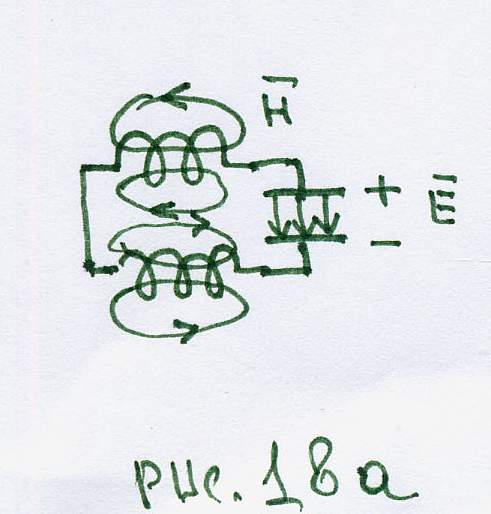 H
+
E
-
рис. 18а